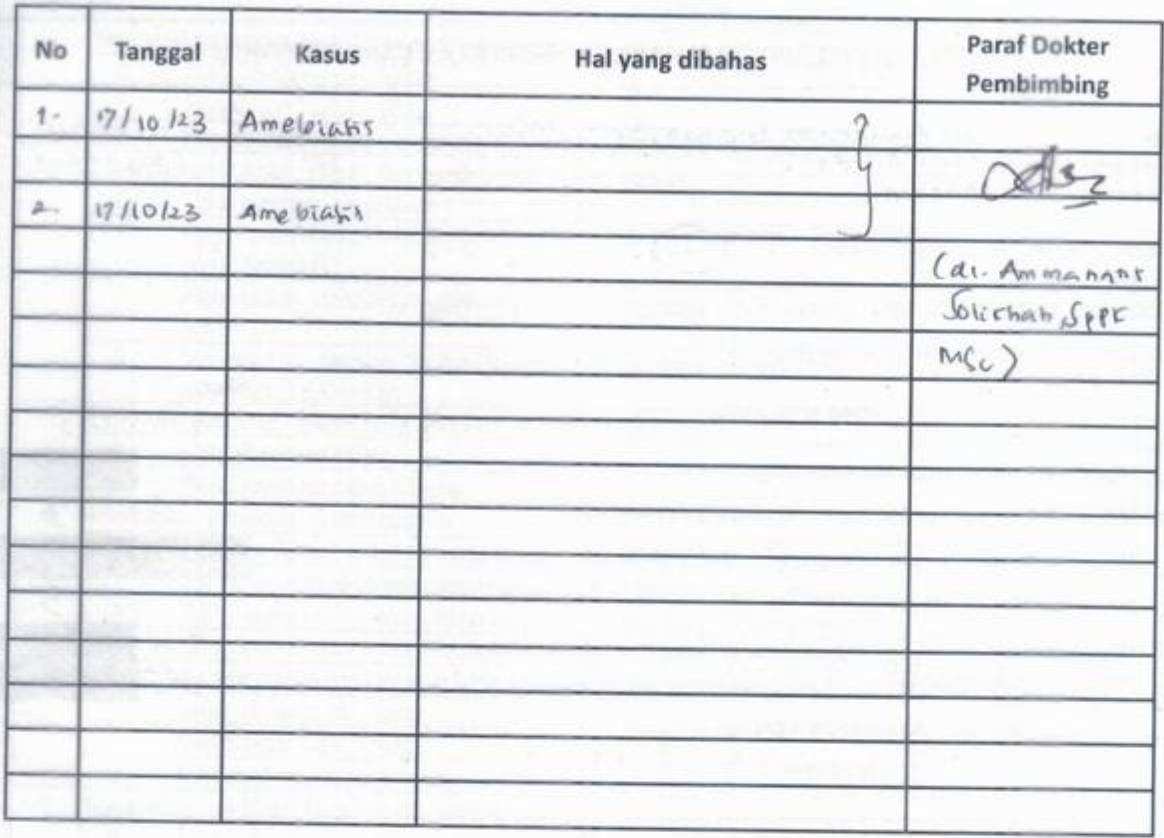 No Tanggal Kasus Hal yang dibahas Paraf Dokter Pembimbing
1. 17/10/23 Amebiasis
2. 17/10/23 Amebiasis
(dr. Ammanant
Solichah, SpPK
MSc)